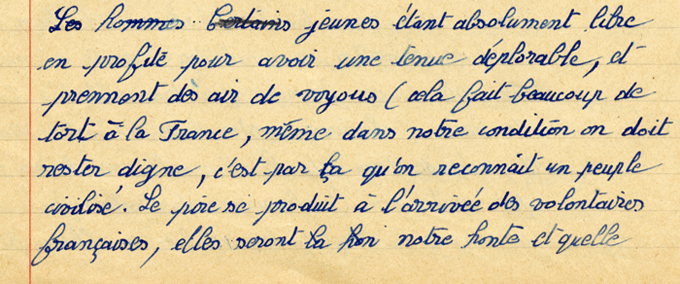 Les hommes certains jeunes étant absolument libre
en profité pour avoir une tenue déplorable, et
prennent des air de voyous (cela fait beaucoup de
tort à la France, même dans notre condition on doit
rester digne, c'est par ça qu'on reconnaît un peuple
civilisé. Le pire se produit à l'arrivée des volontaires
françaises, elles seront la hon notre honte et quelle